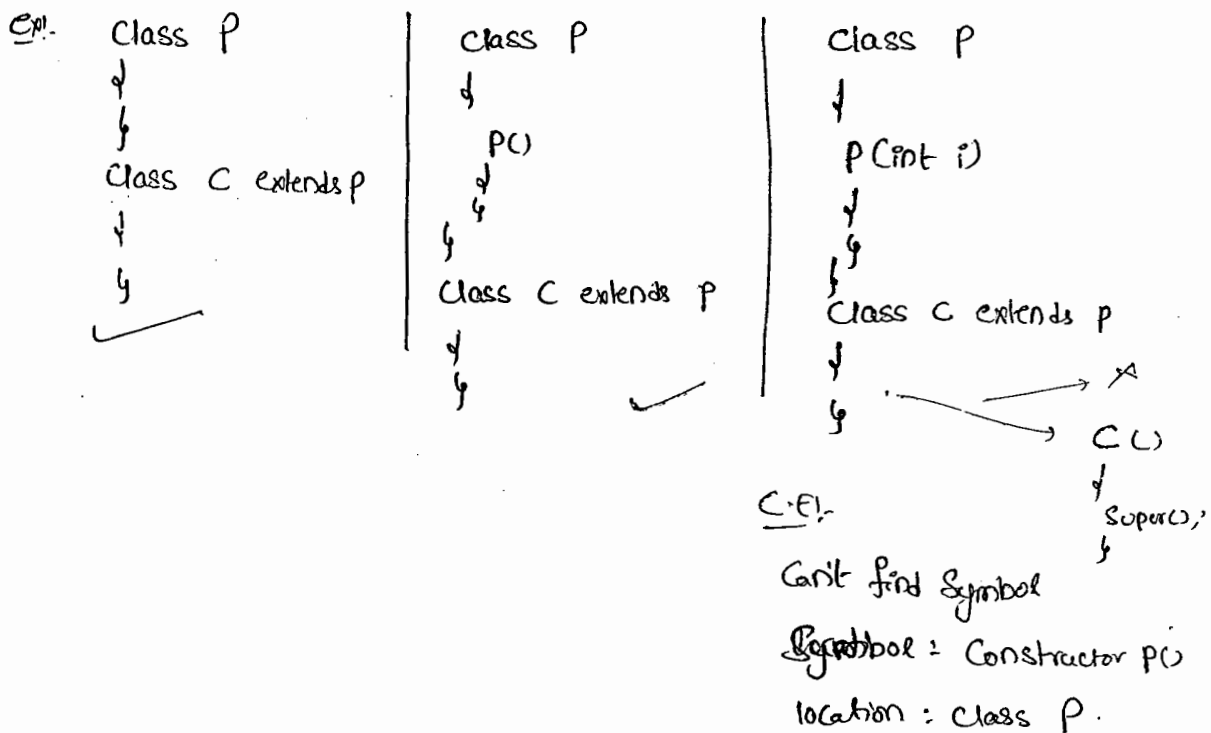 Ex!-
Class P
{
}
Class C extends P
{
}
Class P
{
P()
{
}
}
Class C extends P
{
}
Class P
{
P(int i)
{
}
}
Class C extends P
{
}
C()
{
Super();
}
C.E!-
Can't find Symbol
Symbol : Constructor P()
location : Class P.